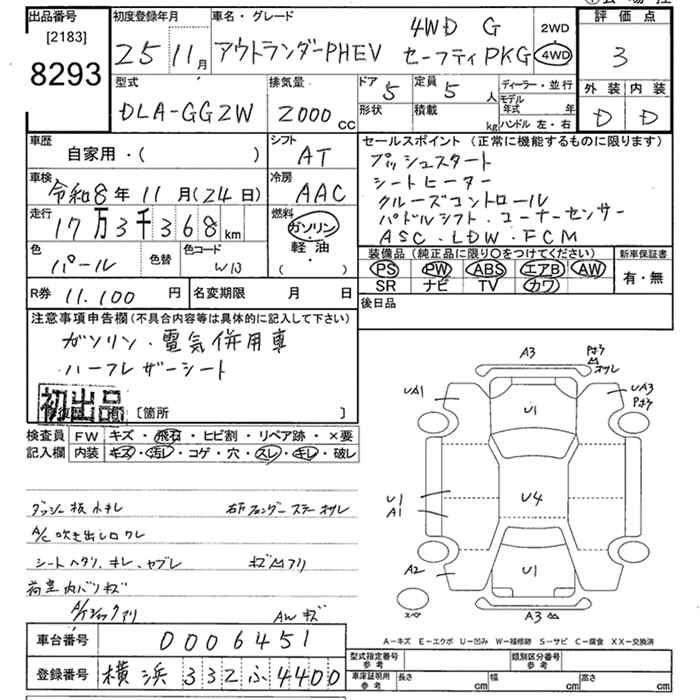 出品番号
[2183]
8293
初度登録年月
25 11月
車名・グレード
4WD G
アウトランダーPHEV セーフティPKG
2WD
4WD
評価点
3
型式
DLA-GG2W
排気量
2000 cc
ドア 5
定員 5 人
形状
積載 kg
ディーラー・並行
モデル年式 年
ハンドル 左・右
外装 内装
D D
車歴
自家用・( )
シフト
AT
車検
令和8年11月(24日)
冷房
AAC
走行
17万3千368km
燃料
ガソリン
軽・油
( )
色
パール
色替
色コード
W13
R券 11.100 円
名変期限 月 日
セールスポイント(正常に機能するものに限ります)
プッシュスタート
シートヒーター
クルーズコントロール
パドルシフト・コーナーセンサー
ASC・LDW・FCM
装備品(純正品に限り○をつけてください)
PS PW ABS エアB AW
SR ナビ TV カワ
新車保証書
有・無
後日品
注意事項申告欄(不具合内容等は具体的に記入して下さい)
ガソリン・電気併用車
ハーフレザーシート
初出品
[箇所 ]
検査員記入欄
FW キズ・飛石・ヒビ割・リペア跡・×要
内装 キズ・汚レ・コゲ・穴・スレ・キレ・破レ
ダッシュ板小キレ
右Fフェンダーステーサレ
A/C吹き出し口ワレ
シートヘタリ、キレ、ヤブレ
キズ凹アリ
荷室内バリキズ
AWキズ
A3
UA1
U1
UA3
U1
A1
U4
A2
U1
A3
A-キズ E-エクボ U-凹み W-補修跡 S-サビ C-腐食 XX-交換済
車台番号
0006451
登録番号
横浜 332 ふ 4400
型式指定番号 参考
類別区分番号 参考
車庫証明用 参考
長さ cm
幅 cm
高さ cm